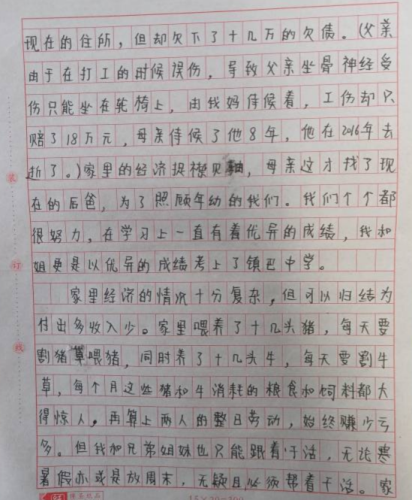 现在的住所，但却欠下了十几万的欠债。(父亲
由于在打工的时候误伤，导致父亲坐骨神经受
伤只能坐在轮椅上，由我妈侍候着，工伤却只
赔了18万元，母亲侍候了他8年，他在2016年去
折了。)家里的经济捉襟见，母亲这才找了现
在的后爸，为了照顾年幼的我们。我们个个都
很努力，在学习上一直有着优异的成绩，我和
姐是以优异的成绩考上了镇巴中学。
家里经济的情况十分复杂，但可以归结为
付出多收入少。家里喂养了十几头猪，每天要
割猪草喂猪，同时养了十几头牛，每天要割牛
草，每个月这些猪和牛消耗的粮食和饲料都大
得惊人。再算上两人的整日劳动，始终赚少亏
多。但我和兄弟姐妹也只能跟着干活，无论寒
暑假亦或是放周末，无疑且必须帮着干活。家
装
订
线